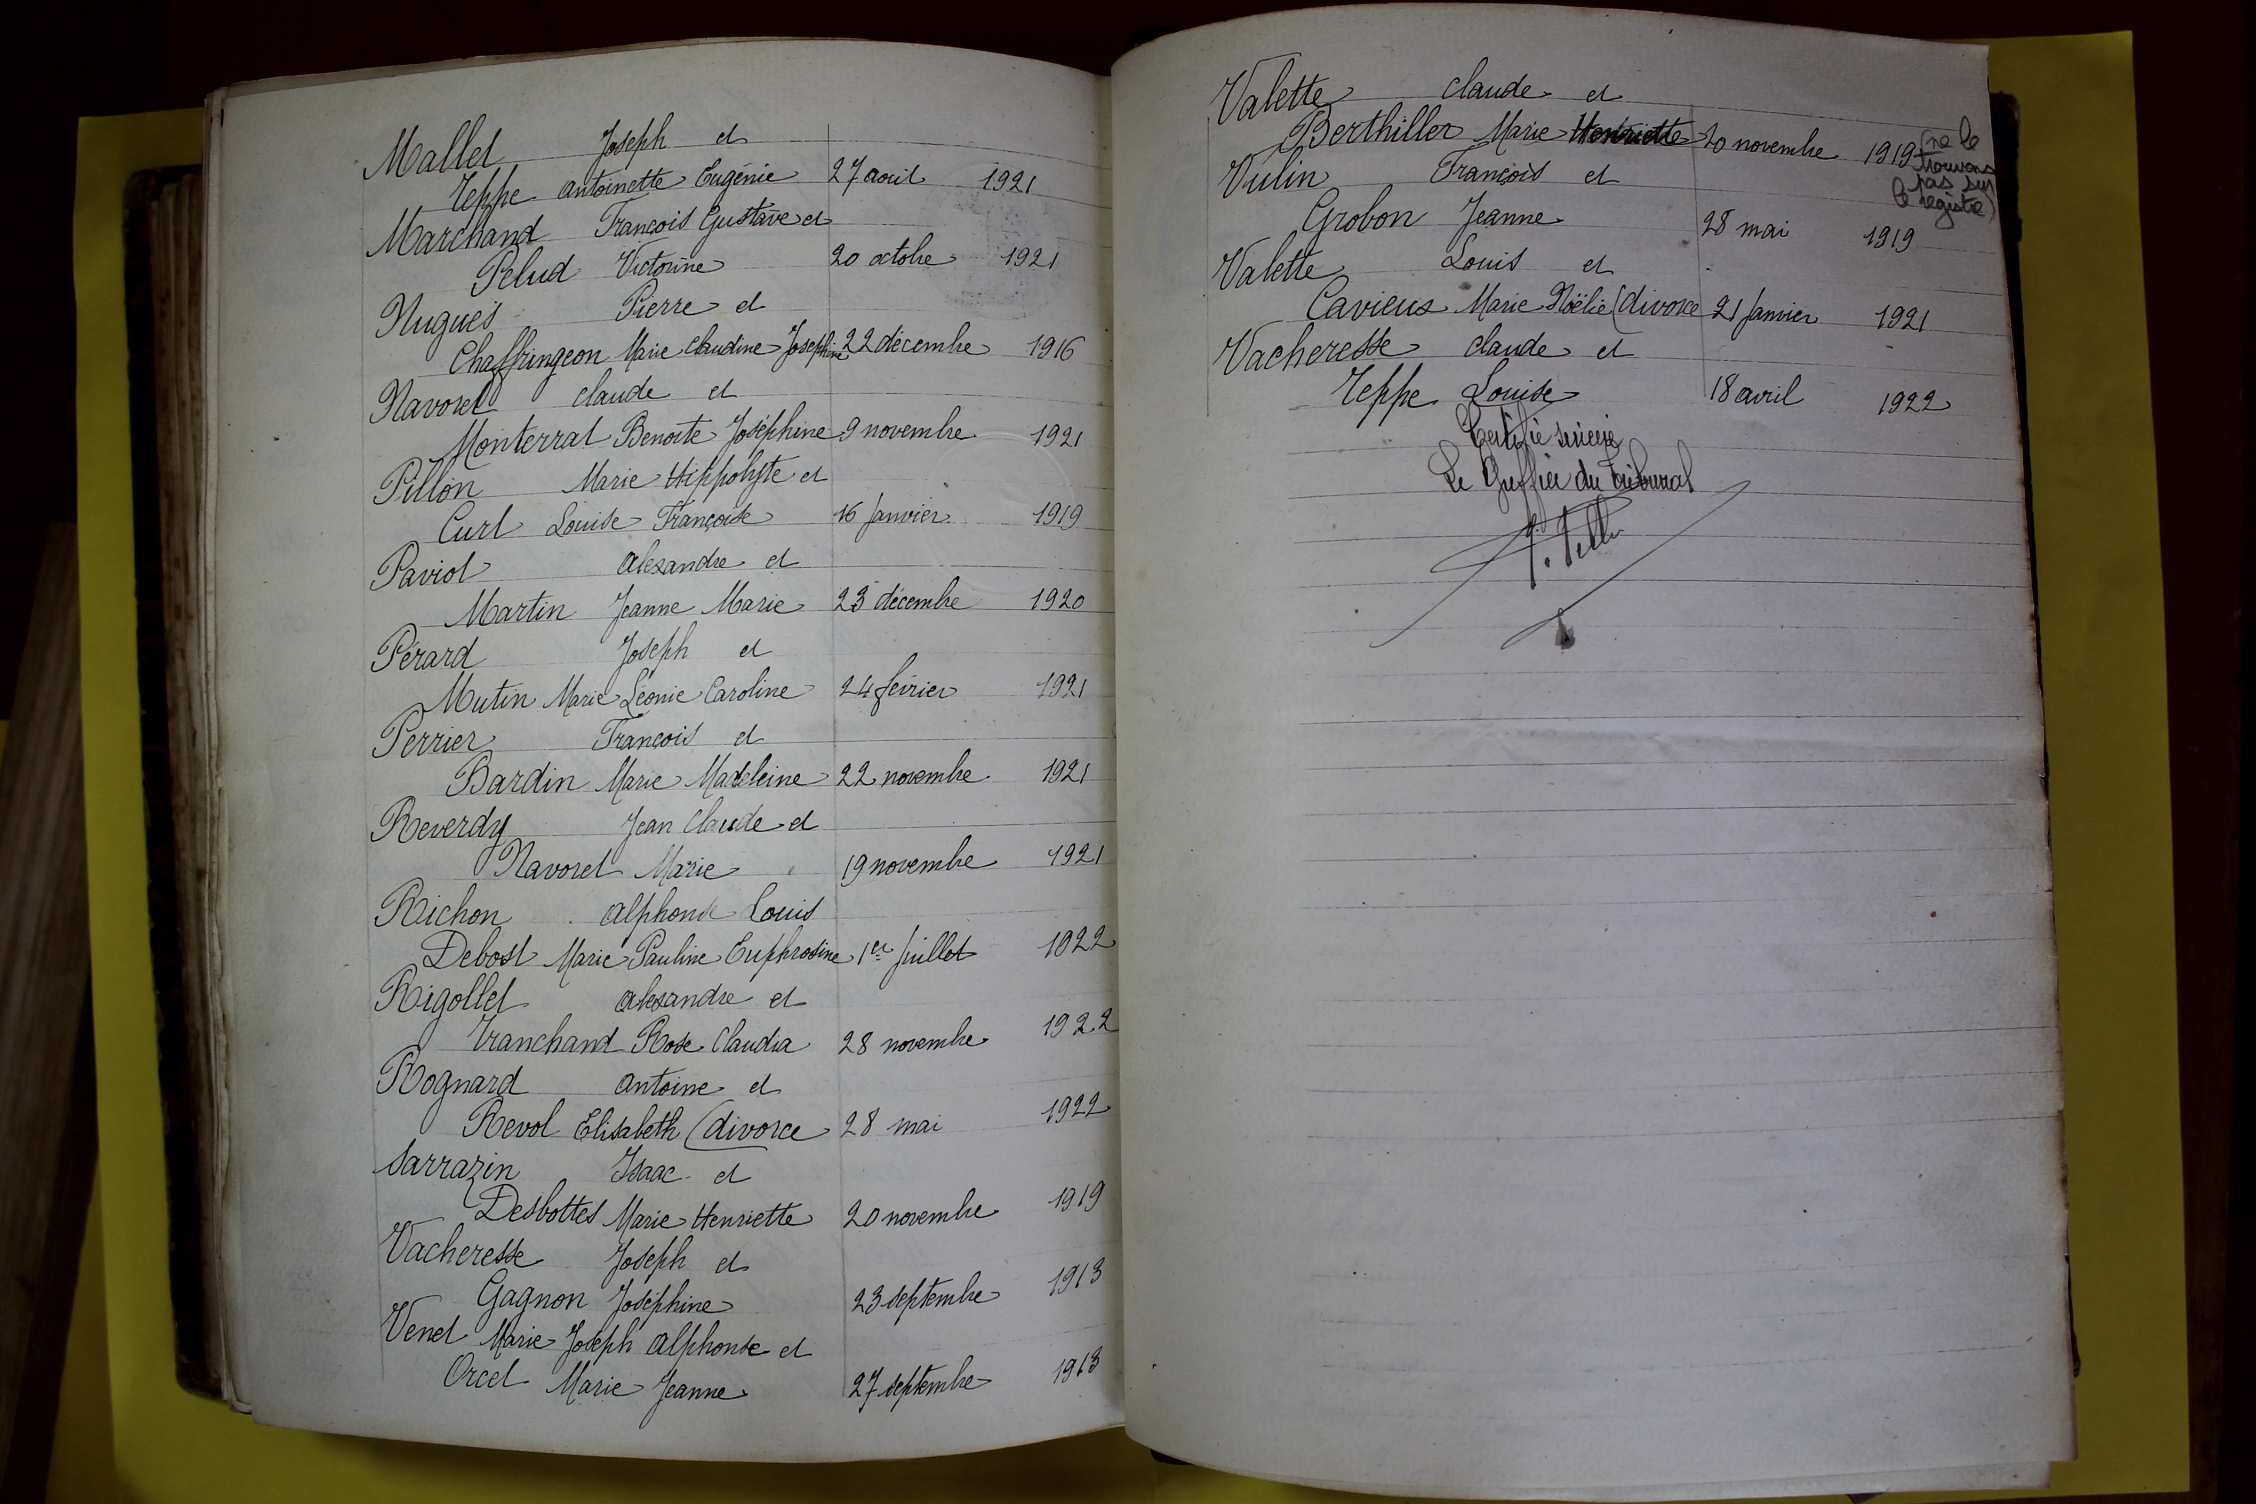 Mallet Joseph et
Teppe Antoinette Eugénie 27 avril 1921
Marchand François Gustave et
Pelud Victorine 20 octobre 1921
Nugues Pierre et
Chaffringeon Marie Claudine Joséphine 22 décembre 1916
Navoret Claude et
Monterrat Benoite Joséphine 9 novembre 1921
Pillon Marie Hippolyte et
Curt Louise Françoise 16 Janvier 1919
Paviot Alexandre et
Martin Jeanne Marie 23 décembre 1920
Perard Joseph et
Mutin Marie Léonie Caroline 24 février 1921
Perrier François et
Bardin Marie Madeleine 22 novembre 1921
Reverdy Jean Claude et
Navoret Marie 19 novembre 1921
Richon Alphonse Louis
Debost Marie Pauline Euphrosine 1er Juillet 1922
Rigollet Alexandre et
Tranchand Rose Claudia 28 novembre 1922
Rognard Antoine et
Revol Elisabeth (divorce 28 mai 1922
Sarrazin Isaac et
Desbottes Marie Henriette 20 novembre 1919
Vacheresse Joseph et
Gagnon Joséphine 23 septembre 1913
Venet Marie Joseph Alphonse et
Orcet Marie Jeanne 27 septembre 1913
Valette Claude et
Berthiller Marie Henriette 20 novembre 1919 (ne le
trouvons
pas sur
le registre)
Vulin François et
Grobon Jeanne 28 mai 1919
Valette Louis et
Cavieux Marie Noëlie (divorce 21 Janvier 1921
Vacheresse Claude et
Teppe Louise 18 avril 1922
Certifié sincère
Le Greffier du Tribunal